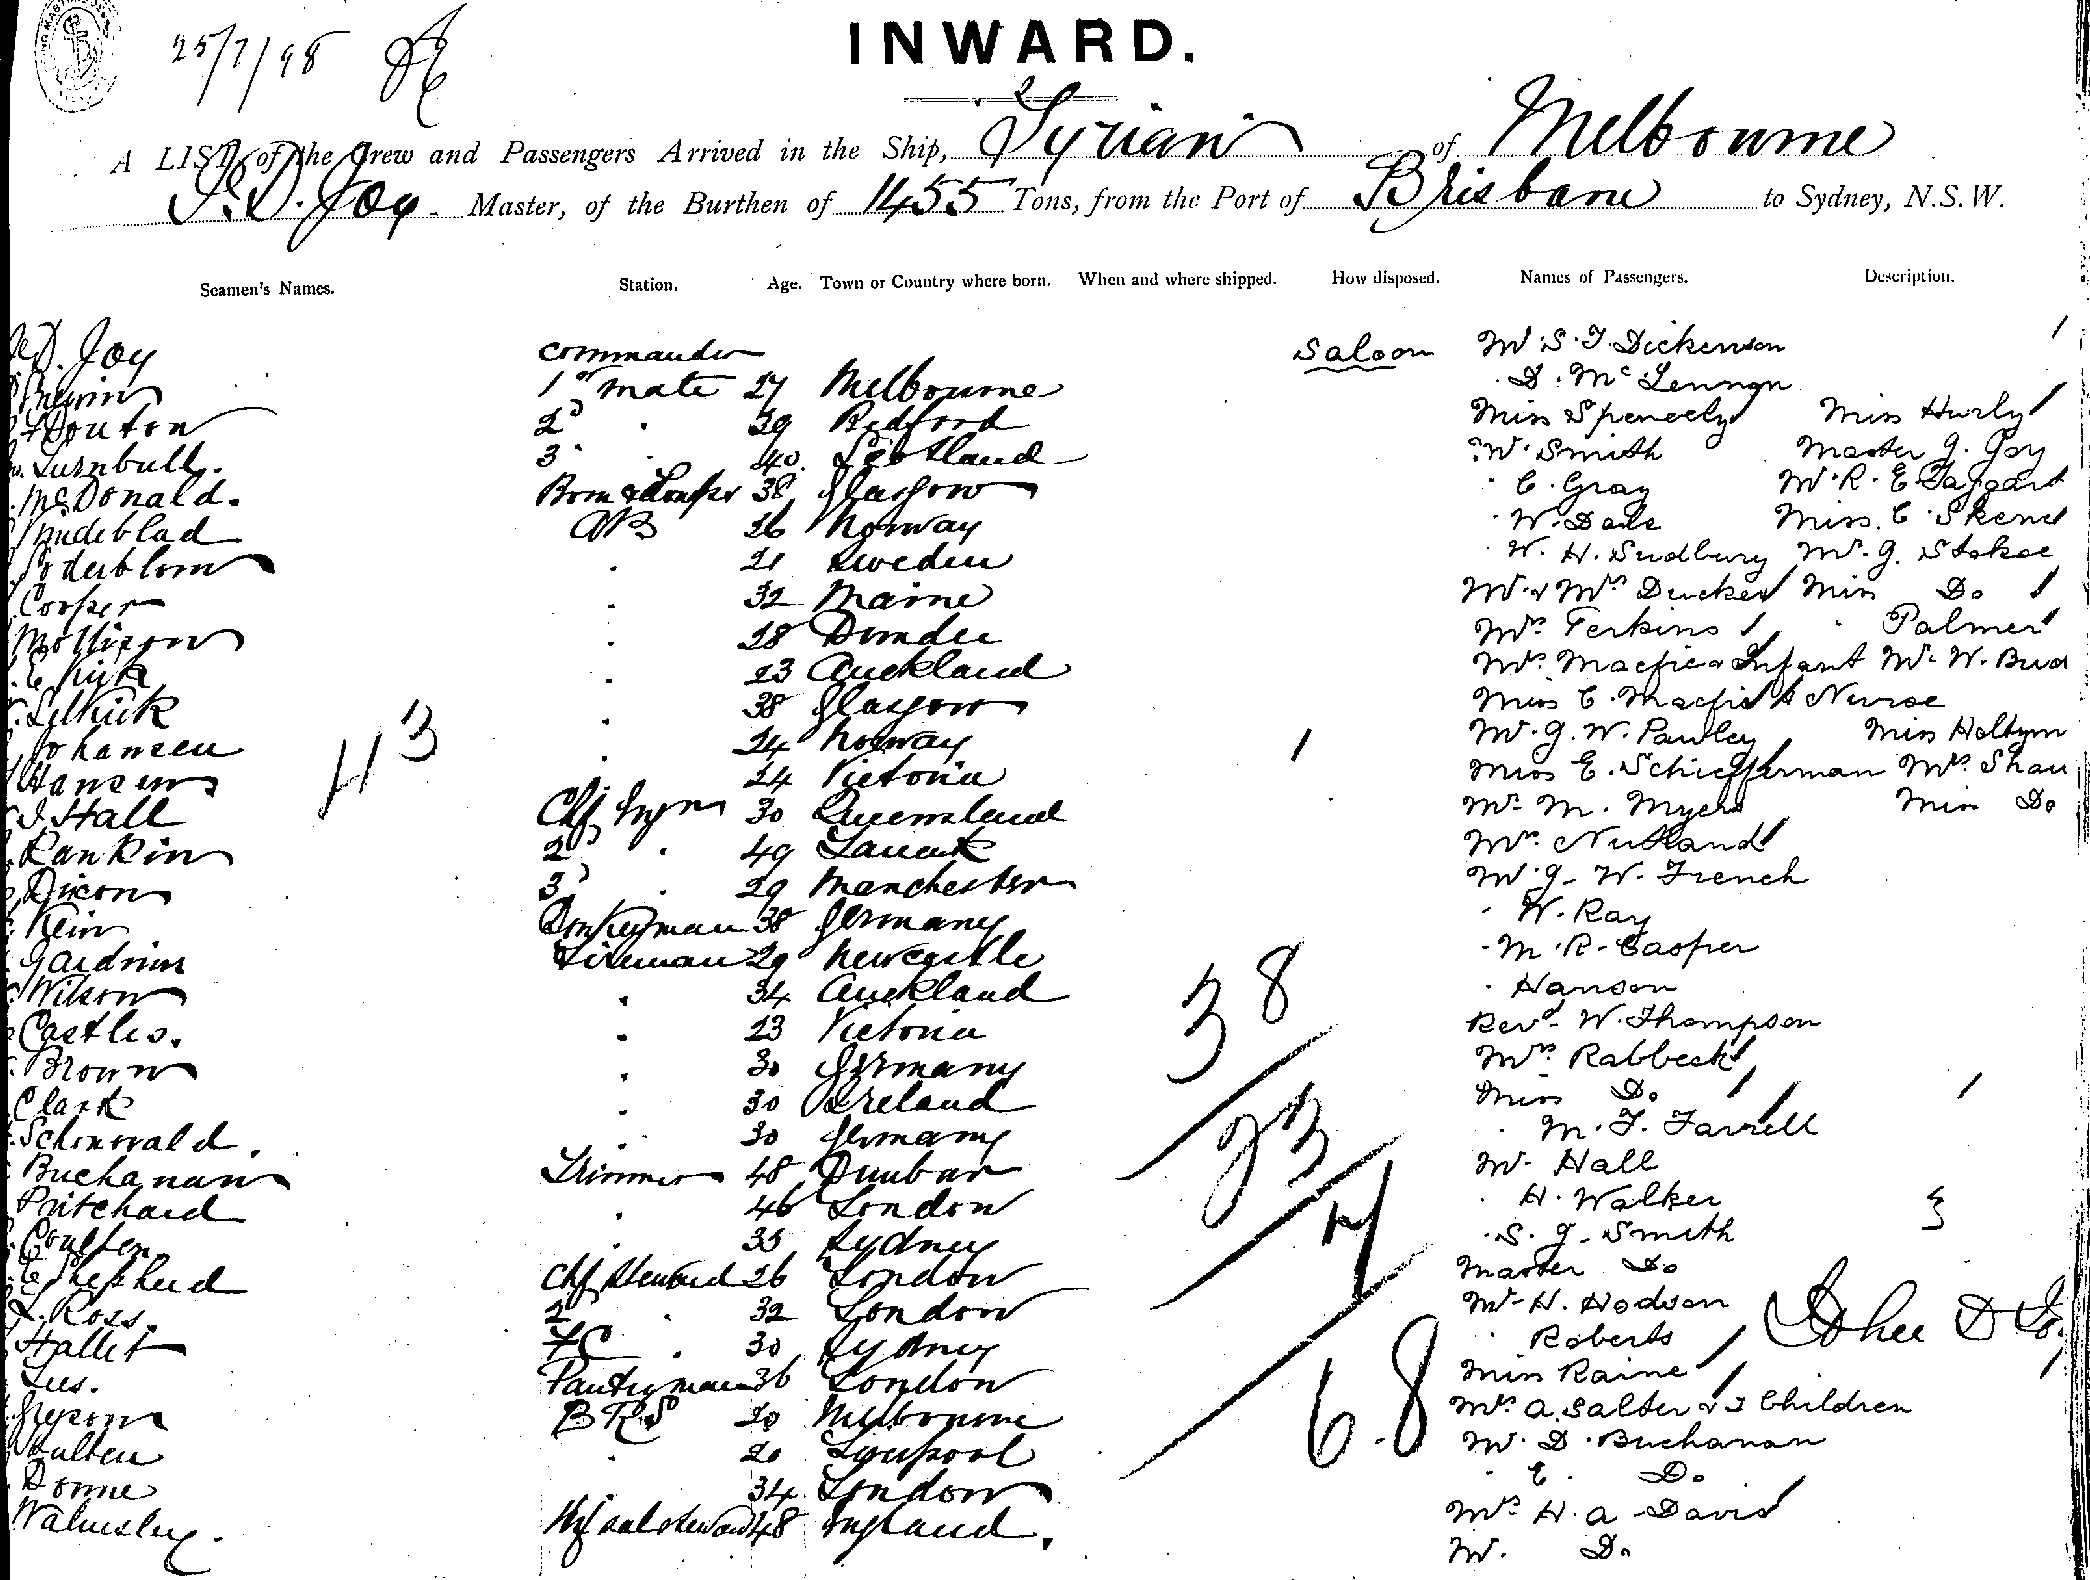 25/7/98
INWARD.
A LIST of the Crew and Passengers Arrived in the Ship, Syrian of Melbourne
J. D. Joy. Master, of the Burthen of 1455 Tons, from the Port of Brisbane to Sydney, N.S.W.
Seamen's Names. Station. Age. Town or Country where born. When and where shipped. How disposed. Names of Passengers. Description.
D. Joy Commander Saloon Mr S. J. Dickenson
1st mate 27 Melbourne D. McLennan
Douton 2d " 39 Bedford Miss Spencely Miss Hurly
Turnbull. 3 " 40 Scotland W. Smith Master G. Joy
McDonald. 38 Glasgow " C. Gray Mr R. E. Taggart
AB 26 Norway " W. Dale Miss E. Skene
Soderblom " 21 Sweden " W. H. Sudbury Mr G. Stokoe
Cooper " 32 Maine Mr & Mrs Ducker Miss Do
Mollison " 28 Dundee Mrs Perkins " Palmer
" 23 Auckland Mrs Macfie & Infant Mr W. Bud
Selkirk " 38 Glasgow Miss C. Macfie & Nurse
Johansen " 24 Norway Mr G. W. Pauley Miss Holtym
Hansen " 24 Victoria Miss E. Schiefferman Mrs Shau
J. Hall Chf Engr 30 Queensland Mr M. Myers Miss Do
Rankin 2d " 49 Lanark Mrs Nutland
Dixon 3d " 29 Manchester Mr G. W. French
Kein Donkeyman 38 Germany " W. Ray
Gardiner Fireman 29 Newcastle " M. R. Cooper
Wilson " 34 Auckland " Hanson
Castles. " 23 Victoria Revd W. Thompson
Brown " 30 Germany Mrs Rabbeck
Clark " 30 Ireland Miss Do
Schonwald. " 30 Germany " M. F. Farrell
Buchanan Trimmer 48 Dunbar Mr Hall
Pritchard " 46 London " H. Walker
Coulten " 35 Sydney " S. G. Smith
Shepherd Chf Steward 26 London Master Do
Ross. 2d " 32 London Mr H. Hodson
Hallet FC " 30 Sydney " Roberts John D Jo
Lees. Pantryman 36 London Miss Raine
BRS 20 Melbourne Mrs A. Salter & 3 Children
" 20 Liverpool Mr D. Buchanan
Donne " 34 London " E. Do
Walmsley. 48 England. Mrs H. A. Davis
Mr Do
43
38
23
7
68